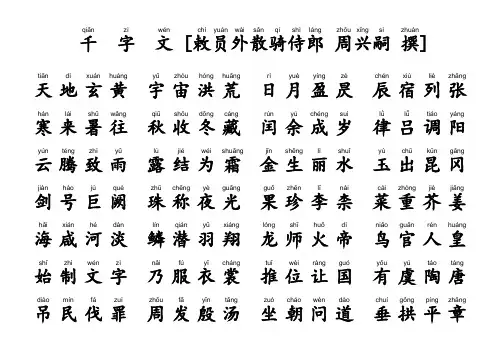 qiān zì wén chì yuán wài sǎn qí shì láng zhōu xīng sì zhuàn
千 字 文 [敕员外散骑侍郎 周兴嗣 撰]
tiān dì xuán huáng yǔ zhòu hóng huāng rì yuè yíng zè chén xiù liè zhāng
天地玄黄 宇宙洪荒 日月盈昃 辰宿列张
hán lái shǔ wǎng qiū shōu dōng cáng rùn yú chéng suì lǜ lǚ tiáo yáng
寒来暑往 秋收冬藏 闰余成岁 律吕调阳
yún téng zhì yǔ lù jié wéi shuāng jīn shēng lì shuǐ yù chū kūn gāng
云腾致雨 露结为霜 金生丽水 玉出昆冈
jiàn hào jù què zhū chēng yè guāng guǒ zhēn lǐ nài cài zhòng jiè jiāng
剑号巨阙 珠称夜光 果珍李柰 菜重芥姜
hǎi xián hé dàn lín qián yǔ xiáng lóng shī huǒ dì niǎo guān rén huáng
海咸河淡 鳞潜羽翔 龙师火帝 鸟官人皇
shǐ zhì wén zì nǎi fú yī cháng tuī wèi ràng guó yǒu yú táo táng
始制文字 乃服衣裳 推位让国 有虞陶唐
diào mín fá zuì zhōu fā yīn tāng zuò cháo wèn dào chuí gǒng píng zhāng
吊民伐罪 周发殷汤 坐朝问道 垂拱平章